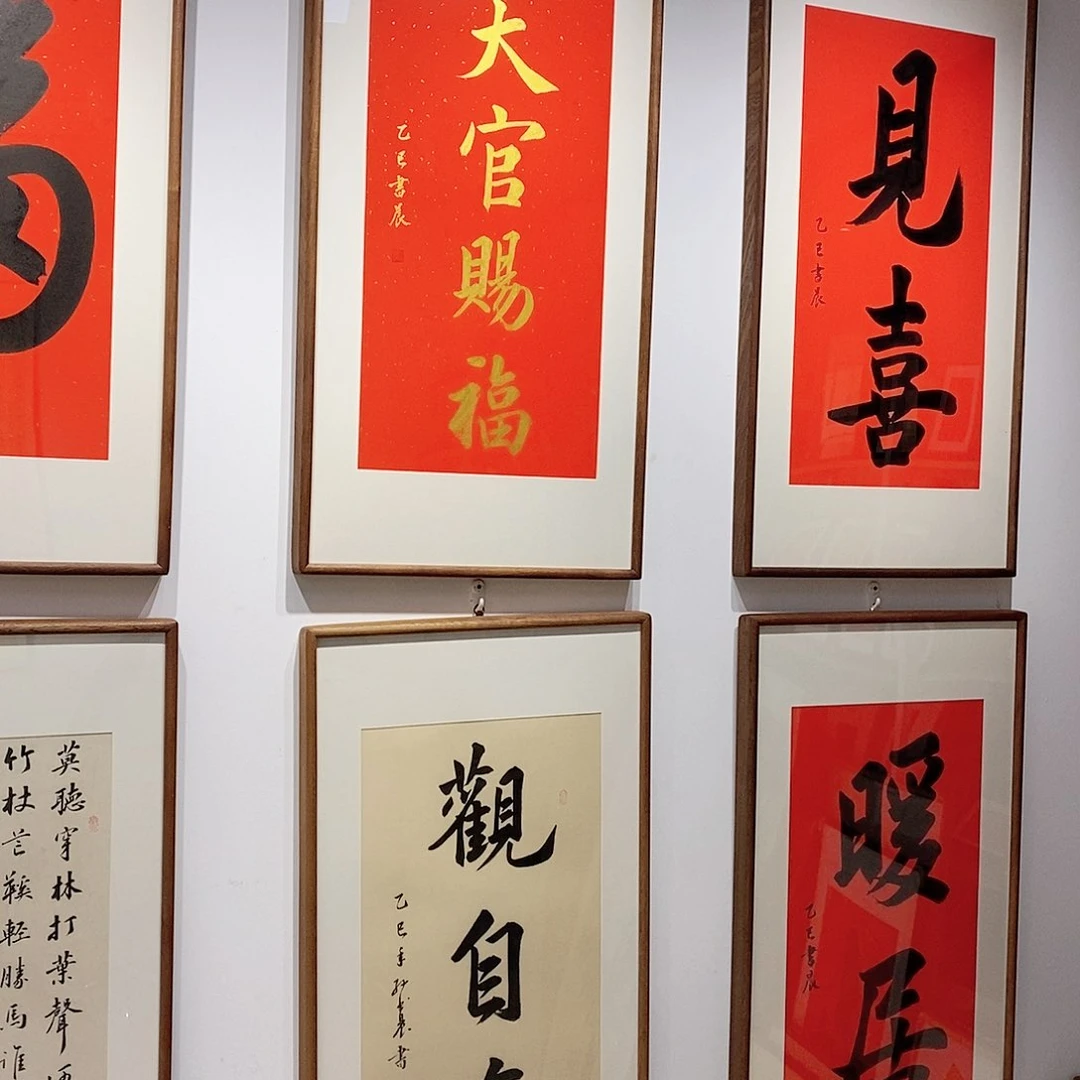 大官賜福
乙巳書晨
見喜
乙巳書晨
莫聽穿林打葉聲
竹杖芒鞵輕勝馬誰
觀自
乙巳年孙書晨書
暖居
乙巳書晨